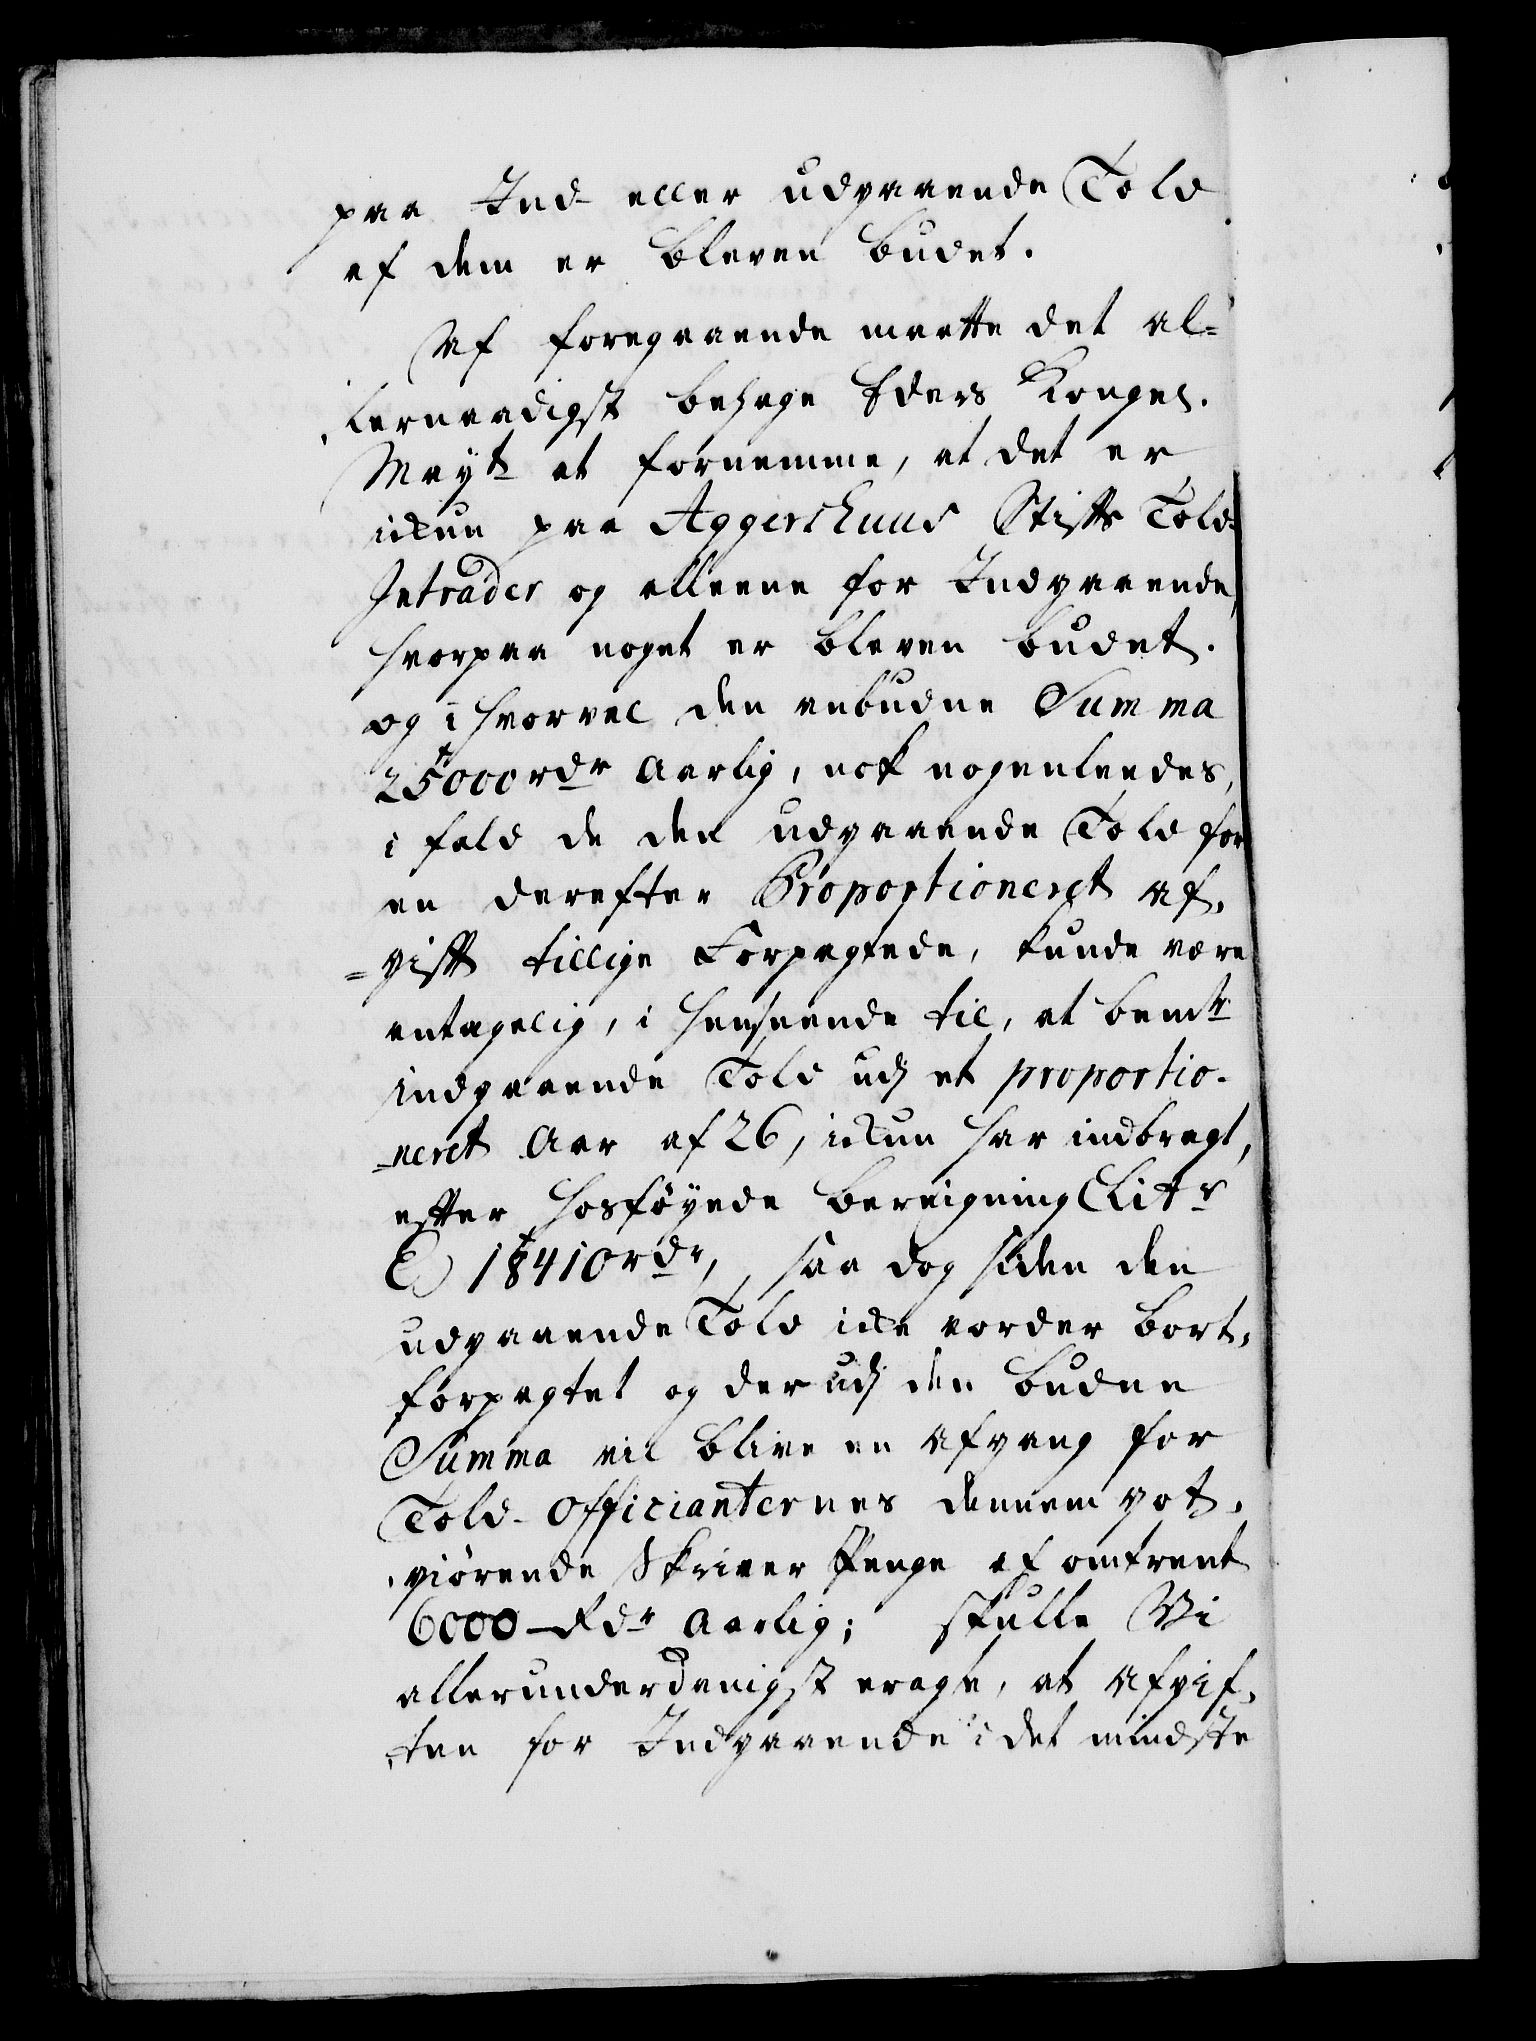 paa Ind- eller udgaaende Told
af dem er bleven budet.
Af foregaaende maatte det al=
lernaadigst behage Eders Kongel.
Mayt at fornemme, at det er
ickun paa Aggershuus Stifts Told-
Intrader og alleene for Indgaaende,
hvorpaa noget er bleven budet.
og ihvorvel den anbudne Summa
25000 rdr aarlig, nok nogenleedes,
i fald de den udgaaende Told for
en derefter Proportioneret af-
=gift tillige Forpagtede, kunde være
antagelig, i henseende til, at bemte
indgaaende Told udj et proportio-
-neret Aar af 26, ickun har indbragt,
efter hosföyede bereigning Litr
E 18410 rdr, saa dog siden den
udgaaende Told icke vorder bort-
forpagtet og der udj den budne
Summa vil blive en Afgang for
Told-Officianternes dennem got-
giörende Skriver Penge af omtrent
6000 Rdr aarlig; skulle Vi
allerunderdanigst eragte, at Afgif-
ten for Indgaaende i det mindste